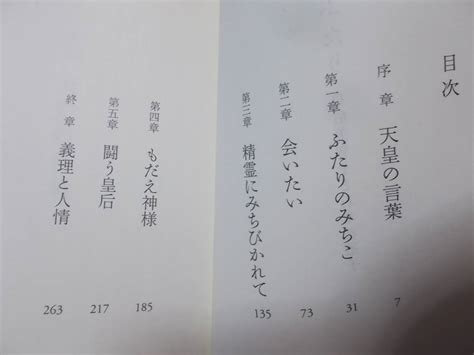 目次
序章 天皇の言葉 7
第一章 ふたりのみちこ 31
第二章 会いたい 73
第三章 精霊にみちびかれて 135
第四章 もだえ神様 185
第五章 闘う皇后 217
終章 義理と人情 263